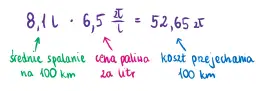 8,1 l · 6,5 zł/l = 52,65 zł
średnie spalanie na 100 km
cena paliwa za litr
koszt przejechania 100 km